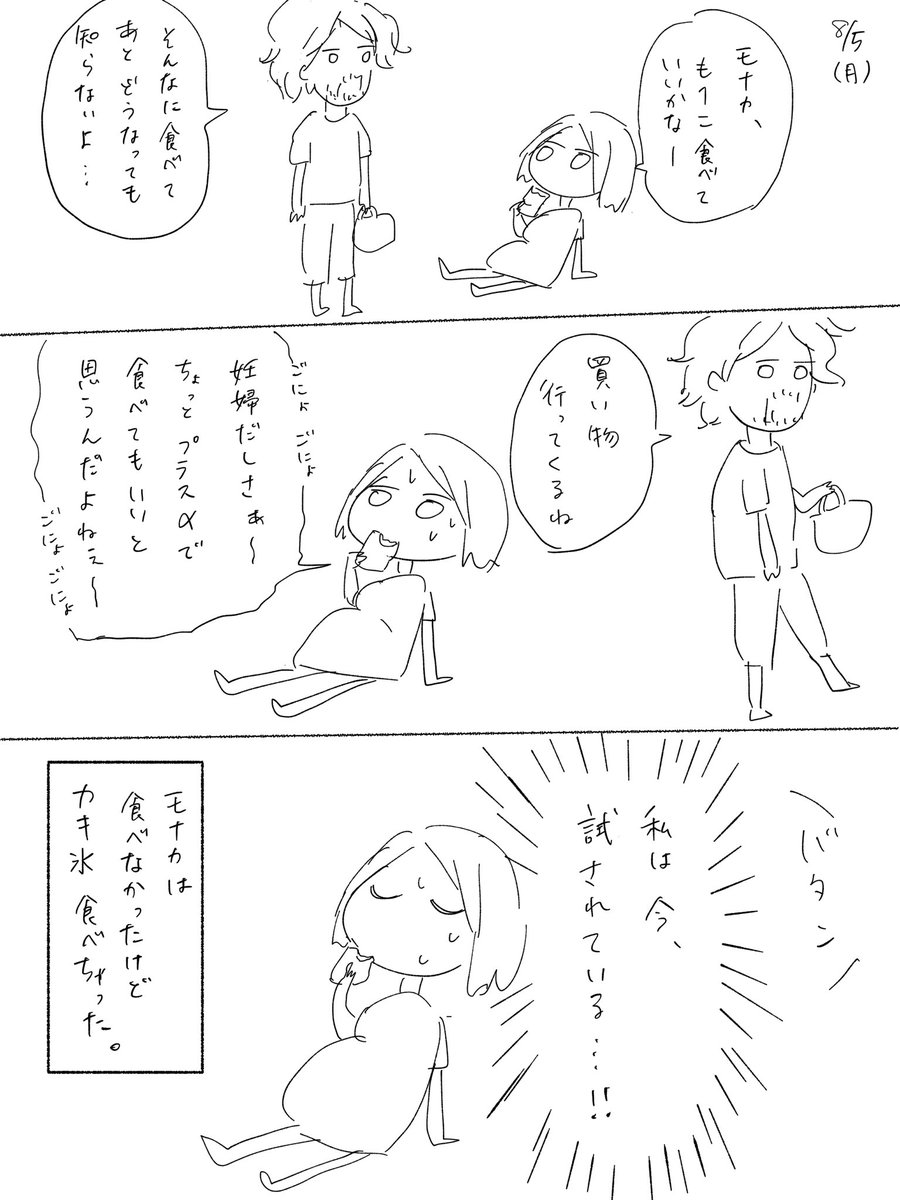 8/5
(月)
モナカ、
もう1こ食べて
いいかなー
そんなに食べて
あとどうなっても
知らないよ…
買い物
行ってくるね
ごにょごにょ
妊婦だしさぁ〜
ちょっとプラスαで
食べてもいいと
思うんだよねぇ〜
ごにょごにょ
バタン
私は今、
試されている…!!
モナカは
食べなかったけど
カキ氷食べちゃった。